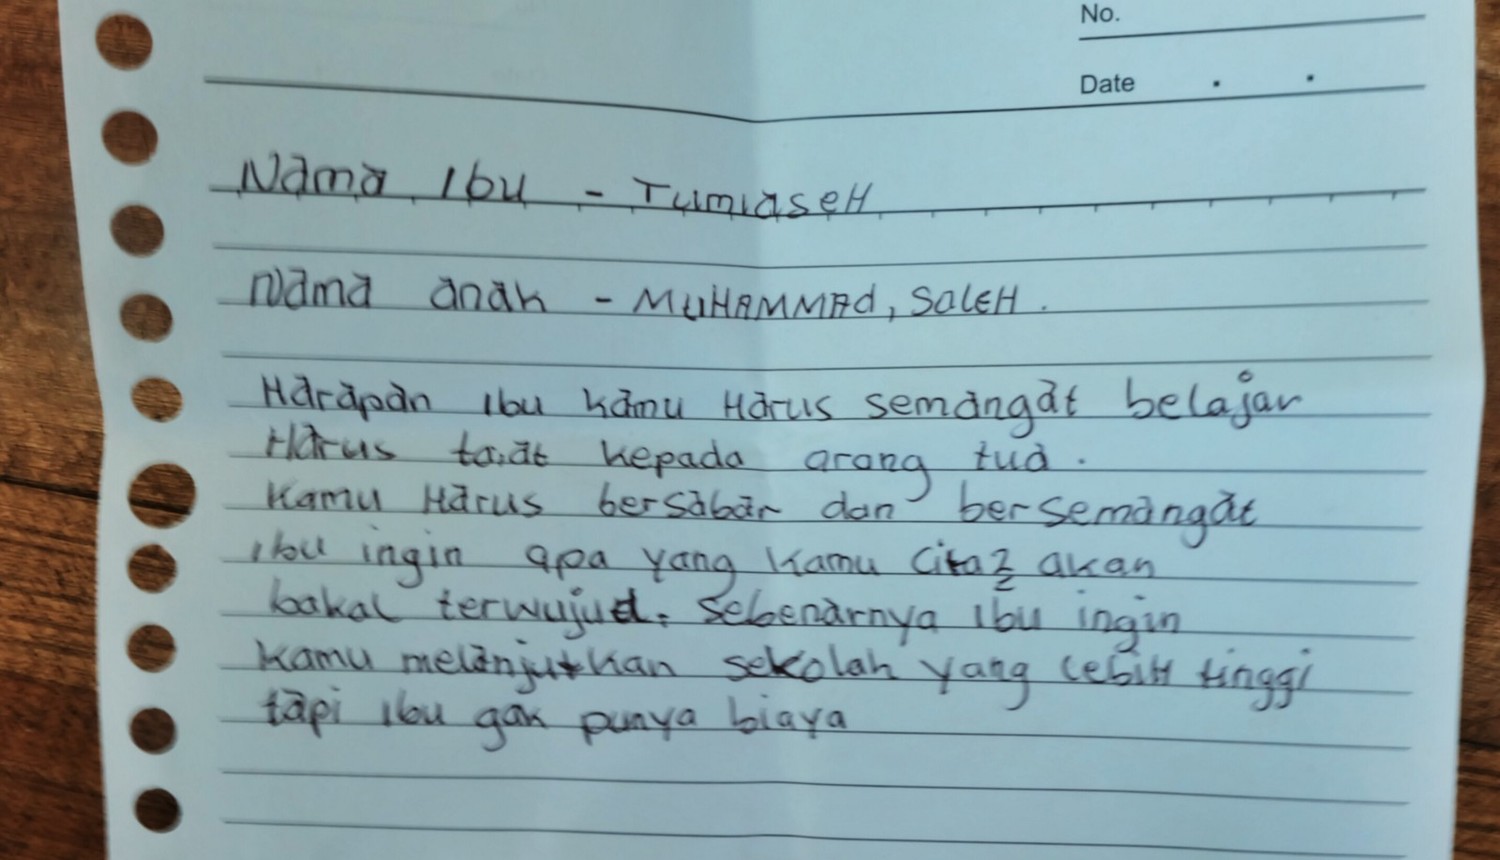 No.
Date . .
Nama Ibu - TumiaseH
Nama anak - MuHAMMAd, SaLEH.
Harapan ibu kamu Harus semangat belajar
Harus taat kepada orang tua.
Kamu Harus bersabar dan bersemangat
ibu ingin apa yang kamu Cita2 akan
bakal terwujud. Sebenarnya ibu ingin
kamu melanjutkan sekolah yang lebiH tinggi
tapi ibu gak punya biaya